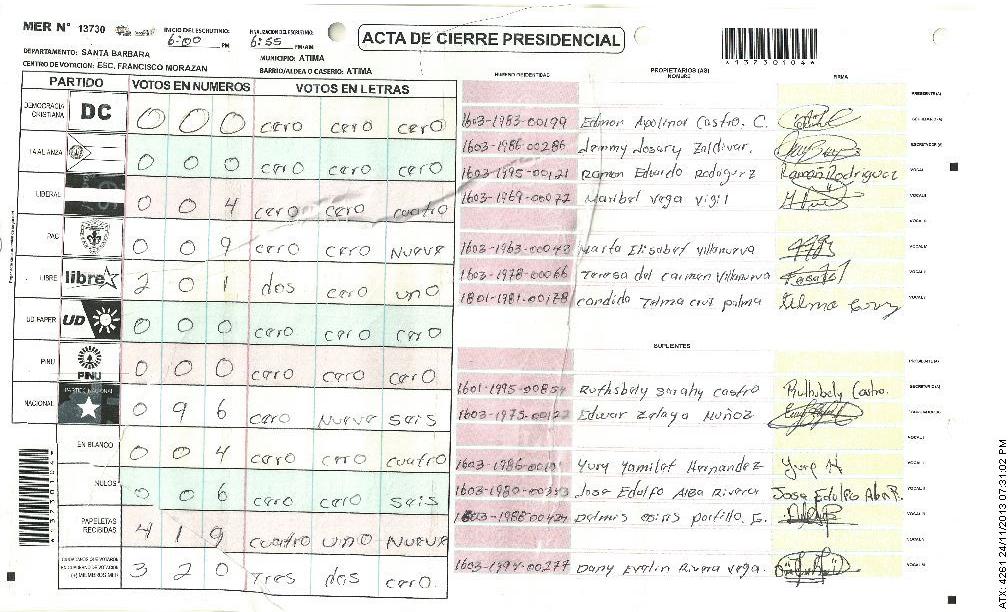 MER N° 13730
INICIO DEL ESCRUTINIO: 6:00 PM
FINALIZACION DEL ESCRUTINIO: 6:55 PM-AM
ACTA DE CIERRE PRESIDENCIAL
*13730104*
DEPARTAMENTO: SANTA BARBARA
MUNICIPIO: ATIMA
CENTRO DE VOTACION: ESC. FRANCISCO MORAZAN
BARRIO/ALDEA O CASERIO: ATIMA
PARTIDO VOTOS EN NUMEROS VOTOS EN LETRAS
DEMOCRACIA CRISTIANA DC 0 0 0 cero cero cero
LA ALIANZA 0 0 0 cero cero cero
LIBERAL 0 0 4 cero cero cuatro
PAC 0 0 9 cero cero Nueve
LIBRE libre 2 0 1 dos cero uno
UD FAPER UD 0 0 0 cero cero cero
PINU PINU 0 0 0 cero cero cero
NACIONAL PARTIDO NACIONAL 0 9 6 cero Nueve seis
EN BLANCO 0 0 4 cero cero cuatro
NULOS 0 0 6 cero cero seis
PAPELETAS RECIBIDAS 4 1 9 cuatro uno Nueve
CIUDADANOS QUE VOTARON EN CUADERNO DE VOTACION (+) MIEMBROS MER 3 2 0 Tres dos cero.
NUMERO DE IDENTIDAD PROPIETARIOS (AS) NOMBRE FIRMA
PRESIDENTE(A)
1603-1983-00199 Edmon Apolinar Castro. C. ESCRUTADOR(A)
1603-1986-00286 Jemmy Josary Zaldivar. SECRETARIO(A)
1603-1995-00121 Ramon Eduardo Rodogerz Ramon Rodriguez VOCAL I
1603-1969-00072 Maribel vega vigil VOCAL II
1603-1963-00043 Marta Elisabet villanueva
1603-1978-00066 Teresa del carmen villanueva
1801-1981-00178 candida Telma cruz palma Telma cruz
SUPLENTES
PRESIDENTE(A)
1601-1995-00854 Ruthsbely Sarahy castro Ruthsbely Castro. SECRETARIO(A)
1603-1975-00122 Edwar Zelaya Muñoz ESCRUTADOR(A)
1603-1986- Yury Yamilet Hernandez Yury H
1603-1980-00353 Jose Edulfo Alba Rivera Jose Edulfo Alba R.
1603-1988-00424 Delmis osiris portillo. G.
1603-1994-00277 Dany Evelin Rivera vega.
*13730104*
ATX: 4261 24/11/2013 07:31:02 PM